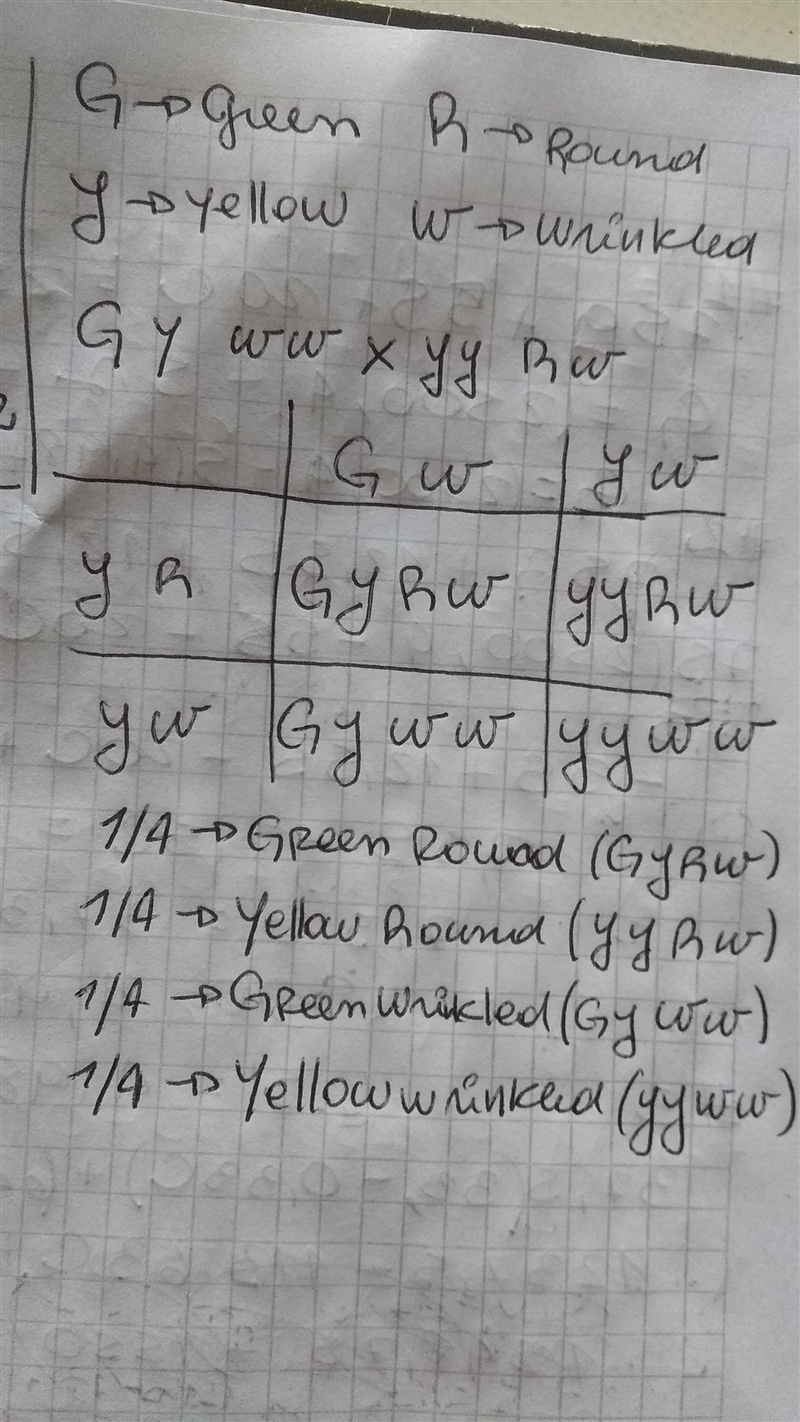 G → Green R → Round
y → yellow w → wrinkled
Gy ww x yy Rw
G w y w
y R Gy Rw yy Rw
y w Gy ww yy ww
1/4 → Green Round (GyRw)
1/4 → Yellow Round (yy Rw)
1/4 → Green Wrikled (Gy ww)
1/4 → Yellow wrinked (yyww)